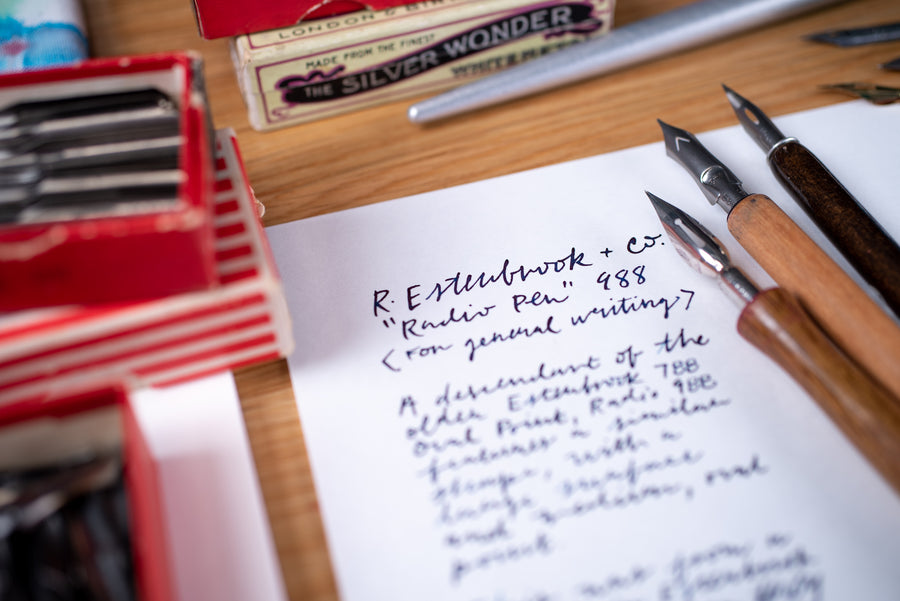 LONDON & BIR
MADE FROM THE FINEST
THE SILVER WONDER
WHITE META
R. Esterbrook + Co.
"Radio Pen" 988
(For general writing)
A descendant of the
older Esterbrook 788
Oval Point, Radio 988
features a similar
shape, with a
large surface
and medium, oval
point.
was from a